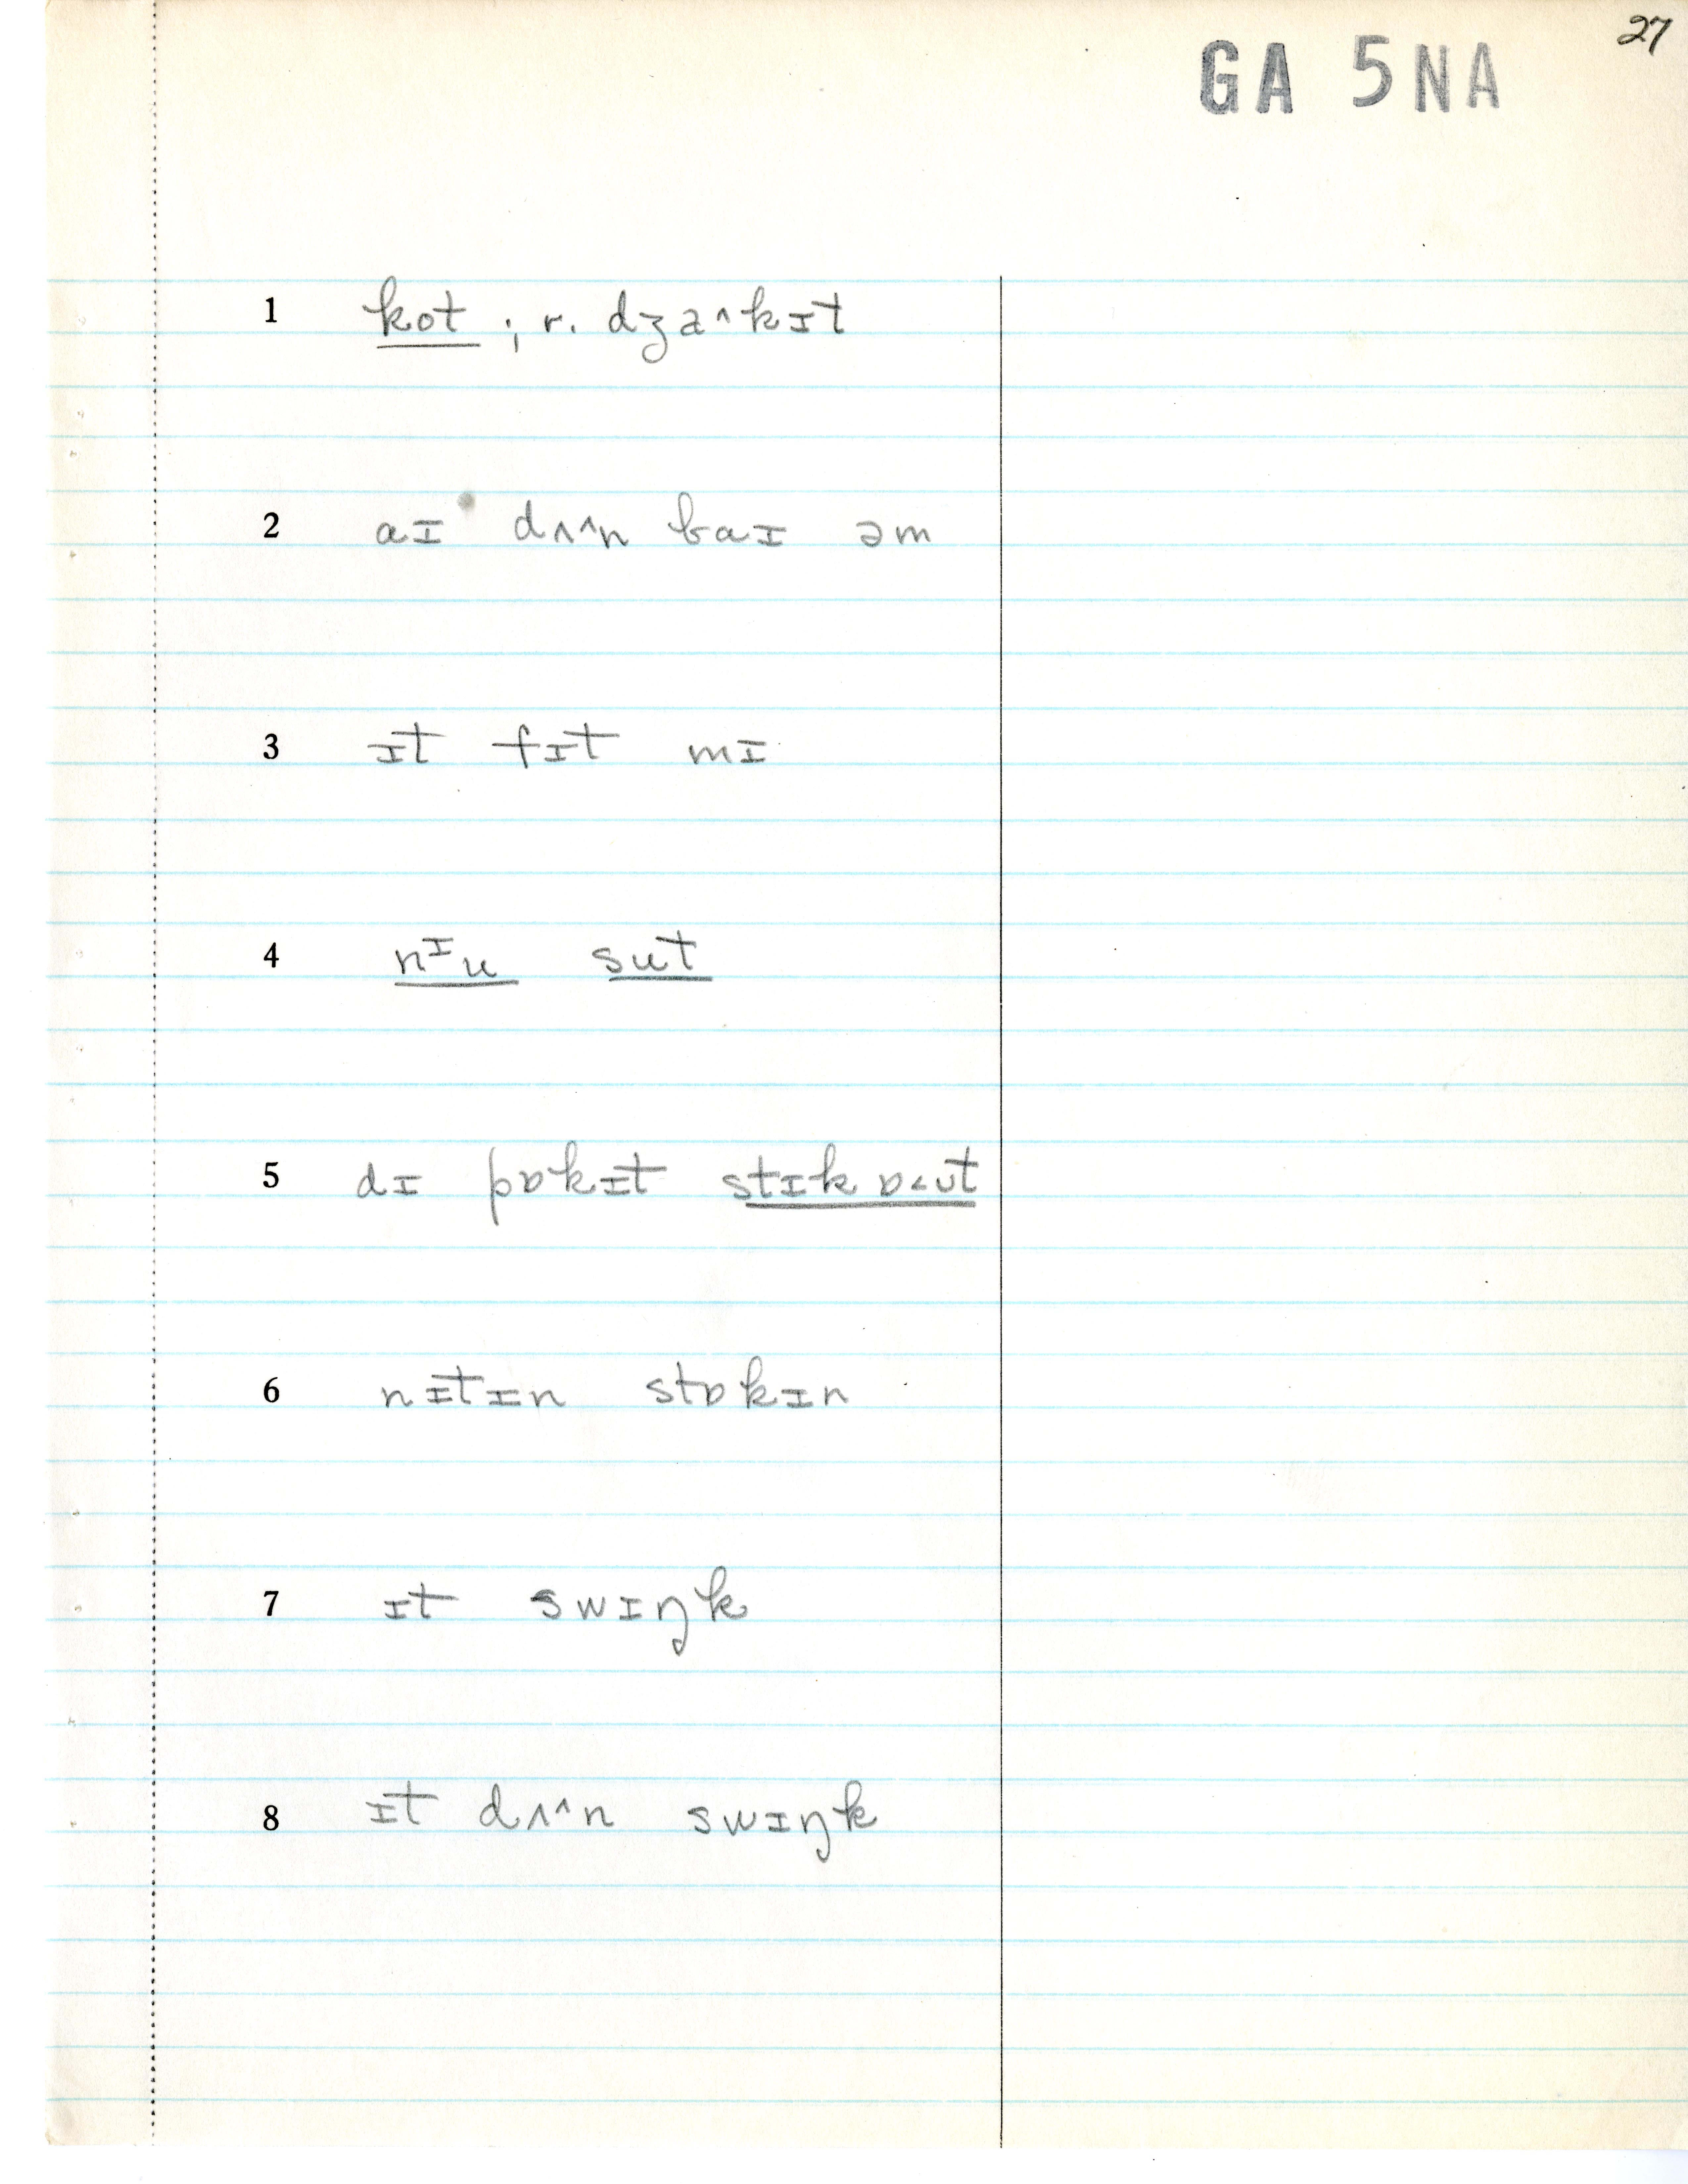 27
GA 5NA
1 kot ; r. dʒaʌkɪt
2 aɪ dʌʌn baɪ əm
3 ɪt fɪt mɪ
4 nᶦu sut
5 dɪ pɒkɪt stɪk ɒ<ʊt
6 nɪtɪn stɒkɪn
7 ɪt swɪŋk
8 ɪt dʌʌn swɪŋk